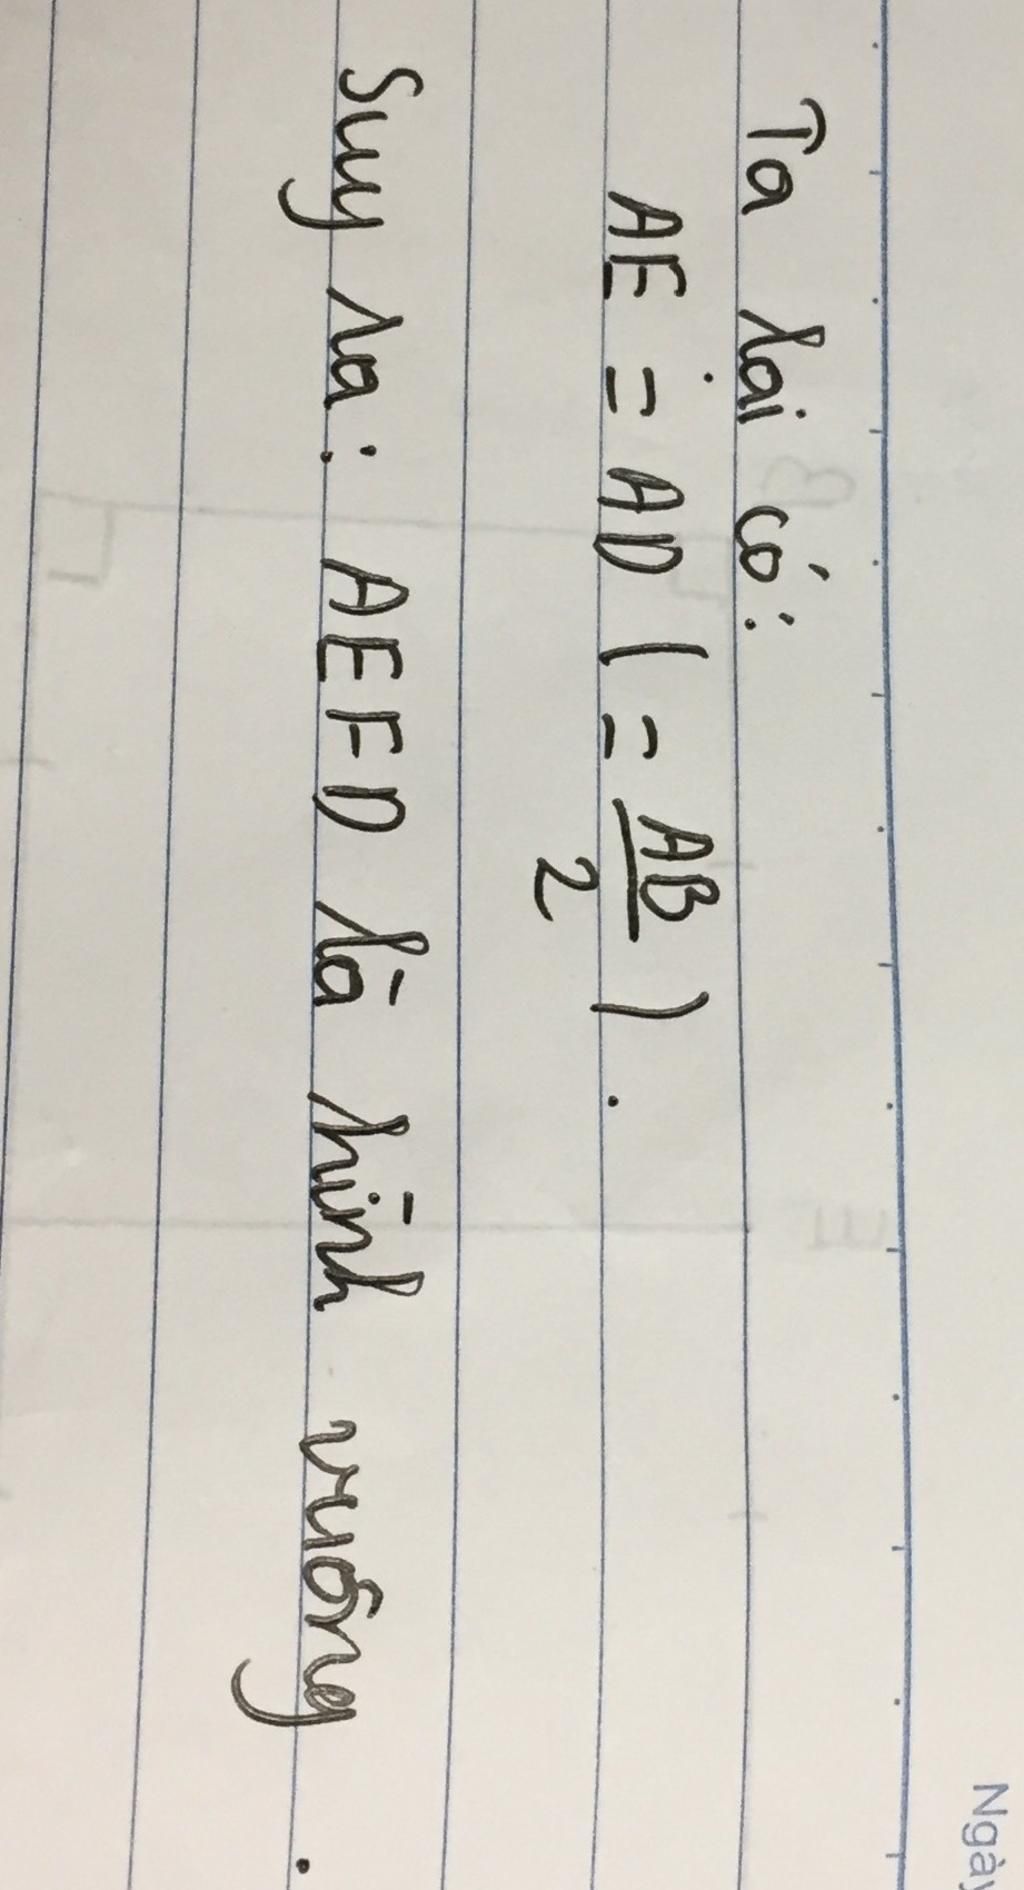 Ngày
Ta lại có:
AE = AD ( = AB/2 ).
Suy ra: AEFD là hình vuông.